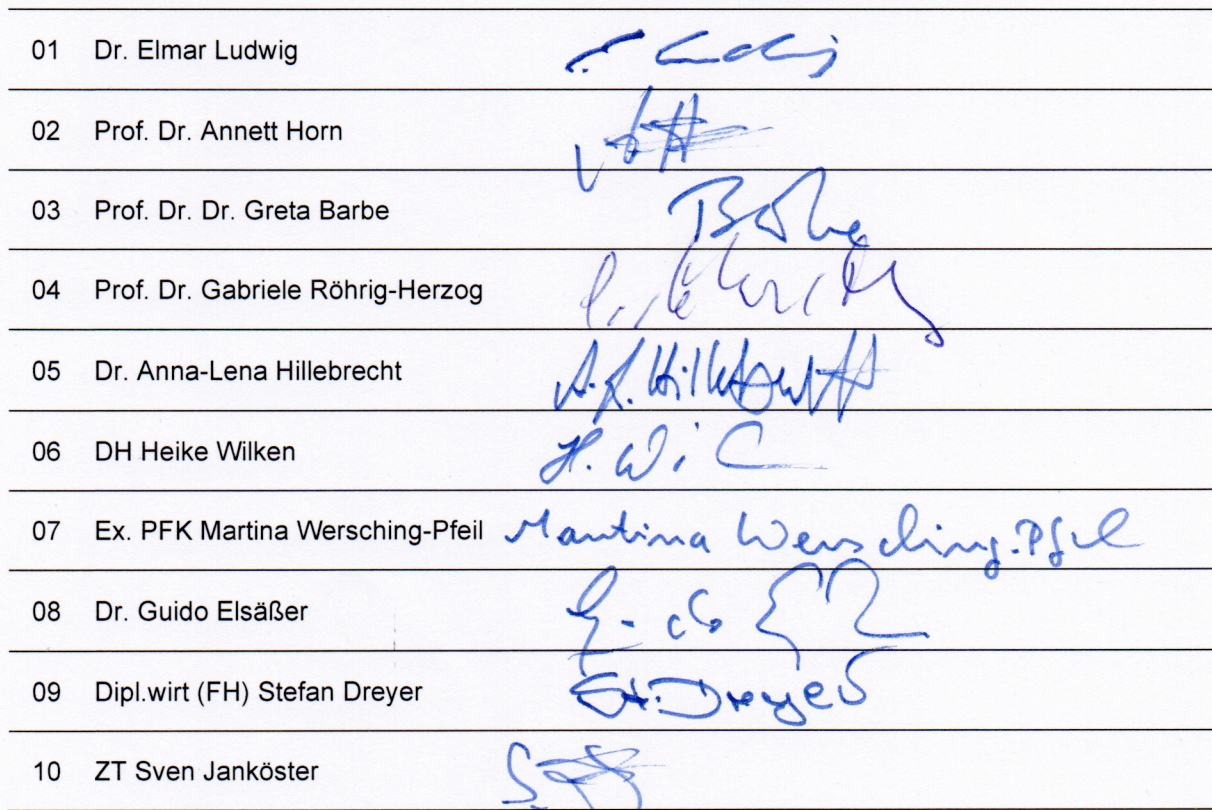 01 Dr. Elmar Ludwig
02 Prof. Dr. Annett Horn
03 Prof. Dr. Dr. Greta Barbe
04 Prof. Dr. Gabriele Röhrig-Herzog
05 Dr. Anna-Lena Hillebrecht A.L. Hillebrecht
06 DH Heike Wilken H. Wil
07 Ex. PFK Martina Wersching-Pfeil Martina Wersching-Pfeil
08 Dr. Guido Elsäßer
09 Dipl.wirt (FH) Stefan Dreyer St. Dreyer
10 ZT Sven Janköster